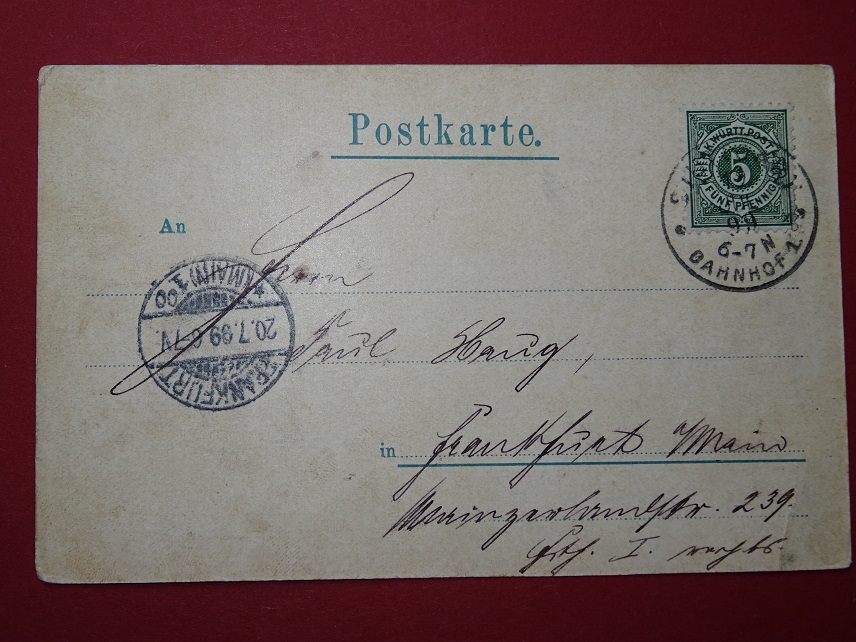 Postkarte.
K. WÜRTT. POST
5
FÜNF PFENNIG
99
6-7 N
BAHNHOF 1
An
Herrn
FRANKFURT
20.7.99 6-7V.
(MAIN) 1.
Paul Haug,
in Frankfurt a/Main
Mainzerlandstr. 239.
I. rechts.